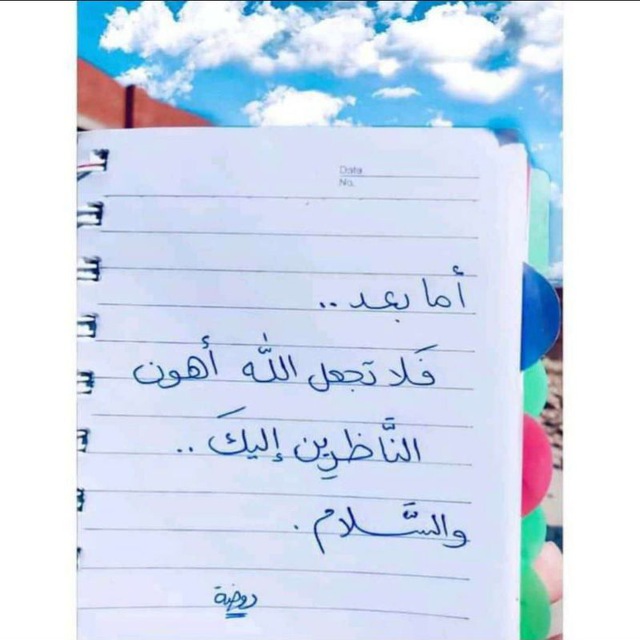 Data
No.
أما بعد ..
فَلا تجعل اللّٰه أهون
النَّاظرِين إليكَ ..
والسَّلام .
روضة